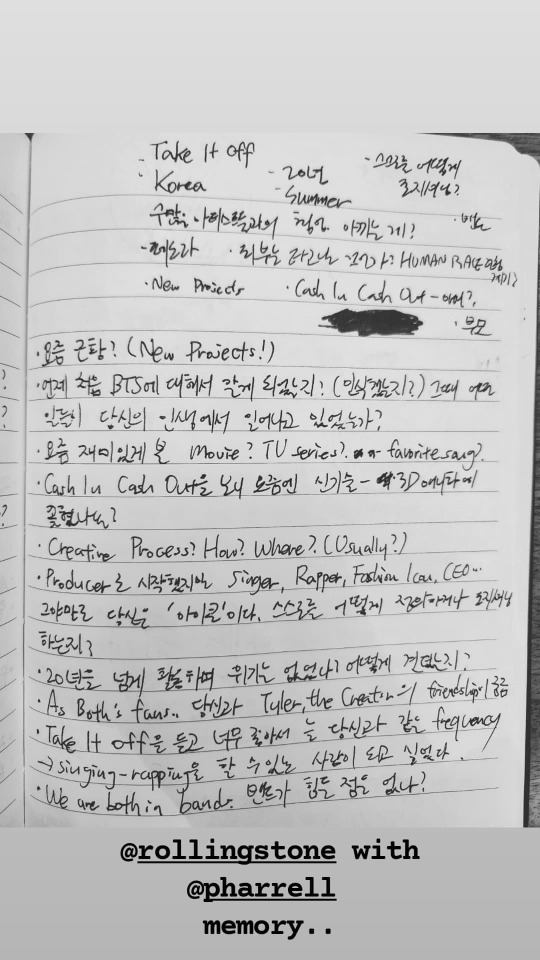 - Take It Off
- Korea
- 20년
- Summer
- 스스로를 어떻게
포지셔닝?
수많은 아티스트들과의 협업 아끼는 게?
· 밴드
· 피부는 타고나는 건가? HUMAN RACE
· New Projects
· Cash In Cash Out - 어떤?
· 부모
· 요즘 근황? (New Projects!)
· 언제 처음 BTS에 대해서 알게 되었는지? (인식했는지?) 그때 어떤
일들이 당신의 인생에서 일어나고 있었는가?
· 요즘 재미있게 본 movie? TV series? favorite song?
· Cash In Cash Out을 보니 요즘엔 신기술 - 3D 에니메에
꽂혔나?
· Creative Process? How? Where? (Usually?)
· Producer로 시작했지만 Singer, Rapper, Fashion Icon, CEO...
그야말로 당신은 '아이콘'이다. 스스로를 어떻게 정의하거나 포지셔닝
하는지?
· 20년을 넘게 활동하며 위기는 없었나? 어떻게 견뎠는지?
· As Both's fans.. 당신과 Tyler, the Creator의 friendship이 궁금
· Take It Off을 듣고 너무 좋아서 늘 당신과 같은 frequency
→ singing-rapping을 할 수 있는 사람이 되고 싶었다.
· We are both in band. 밴드가 힘든 점은 없나?
@rollingstone with
@pharrell
memory..